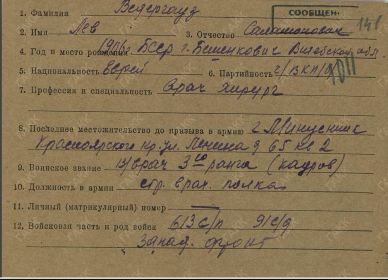 СООБЩЕН
148
1. Фамилия Везергауз
2. Имя Лев 3. Отчество Саламонович
4. Год и место рождения 1911 г. БССР г. Бешенкович Витебской обл
5. Национальность еврей 6. Партийность
7. Профессия и специальность Врач хирург
8. Последнее местожительство до призыва в армию г. Минусинск
Красноярского кр. ул. Ленина д 65 кв 2
9. Воинское звание в/врач 3го ранга (кадров)
10. Должность в армии стр. врач. полка
11. Личный (матрикулярный) номер —
12. Войсковая часть и род войск 613 с/п 91 с/д
Запад. фронт